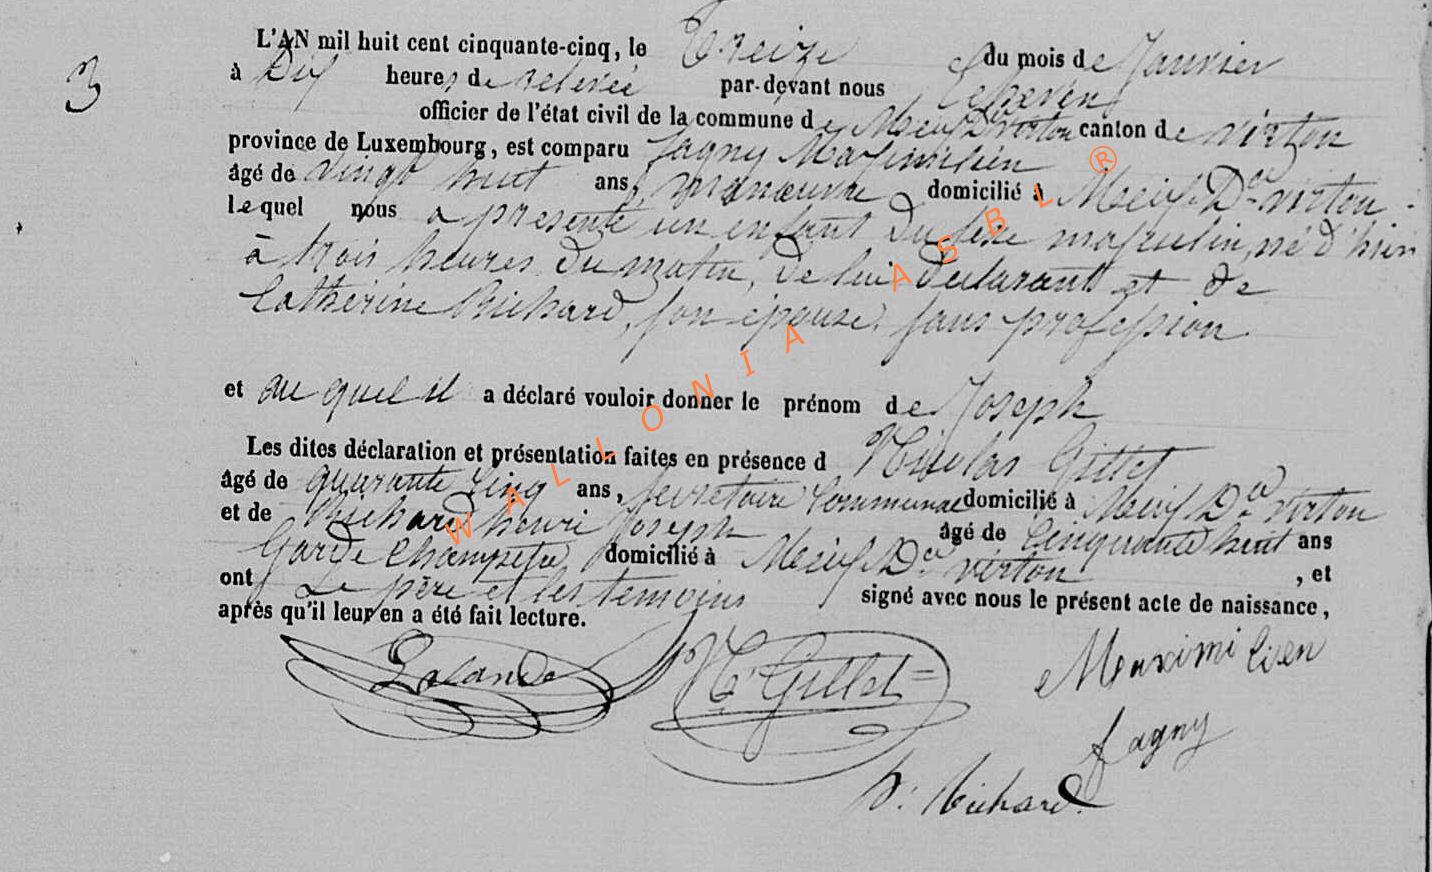 3
L'AN mil huit cent cinquante-cinq, le Treize du mois de Janvier
à Dix heures de relevée par-devant nous
officier de l'état civil de la commune de Meix Dt virton canton de virton
province de Luxembourg, est comparu fagny Maximilien
âgé de vingt huit ans, manœuvre domicilié à Meix Dt virton
lequel nous a présenté un enfant Du sexe masculin, né d'hier
à trois heures Du matin, De lui Déclarant et De
Catherine Richard, son épouse, sans profession
et au quel il a déclaré vouloir donner le prénom de Joseph
Les dites déclaration et présentation faites en présence d Nicolas Gillet
âgé de quarante cinq ans, secrétaire Communal domicilié à Meix Dt virton
et de Richard henri Joseph âgé de Cinquante huit ans
Garde Champêtre domicilié à Meix Dt virton, et
ont Le père et les temoins signé avec nous le présent acte de naissance,
après qu'il leur en a été fait lecture.
N. Gillet
Maximilien
fagny
h. Richard
WALLONIA ASBL ®